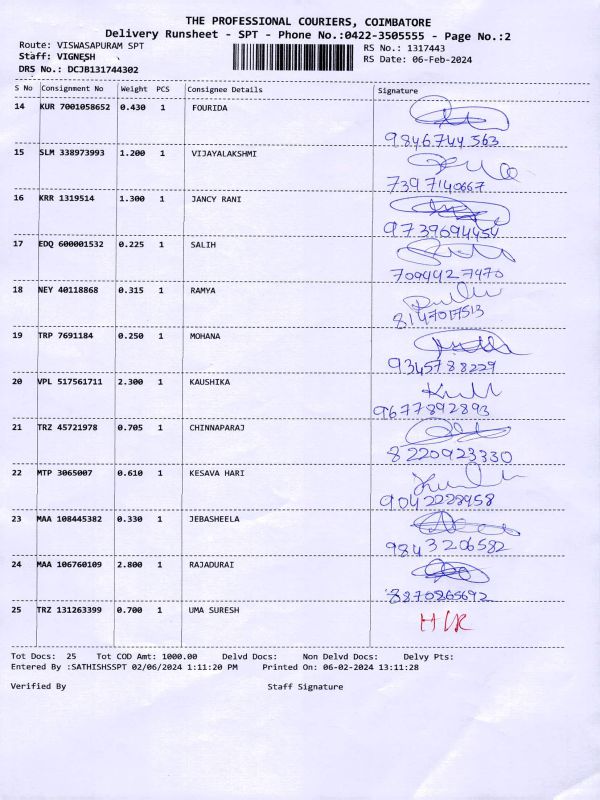 THE PROFESSIONAL COURIERS, COIMBATORE
Delivery Runsheet - SPT - Phone No.:0422-3505555 - Page No.:2
Route: VISWASAPURAM SPT RS No.: 1317443
Staff: VIGNESH RS Date: 06-Feb-2024
DRS No.: DCJB131744302
S No Consignment No Weight PCS Consignee Details Signature
14 KUR 7001058652 0.430 1 FOURIDA
9846744563
15 SLM 338973993 1.200 1 VIJAYALAKSHMI
7397140667
16 KRR 1319514 1.300 1 JANCY RANI
9739694454
17 EDQ 600001532 0.225 1 SALIH
7094427470
18 NEY 40118868 0.315 1 RAMYA
8147017513
19 TRP 7691184 0.250 1 MOHANA
9345788229
20 VPL 517561711 2.300 1 KAUSHIKA
9677892893
21 TRZ 45721978 0.705 1 CHINNAPARAJ
8220923330
22 MTP 3065007 0.610 1 KESAVA HARI
9042228958
23 MAA 108445382 0.330 1 JEBASHEELA
9843206582
24 MAA 106760109 2.800 1 RAJADURAI
8870265692
25 TRZ 131263399 0.700 1 UMA SURESH
Tot Docs: 25 Tot COD Amt: 1000.00 Delvd Docs: Non Delvd Docs: Delvy Pts:
Entered By :SATHISHSSPT 02/06/2024 1:11:20 PM Printed On: 06-02-2024 13:11:28
Verified By Staff Signature